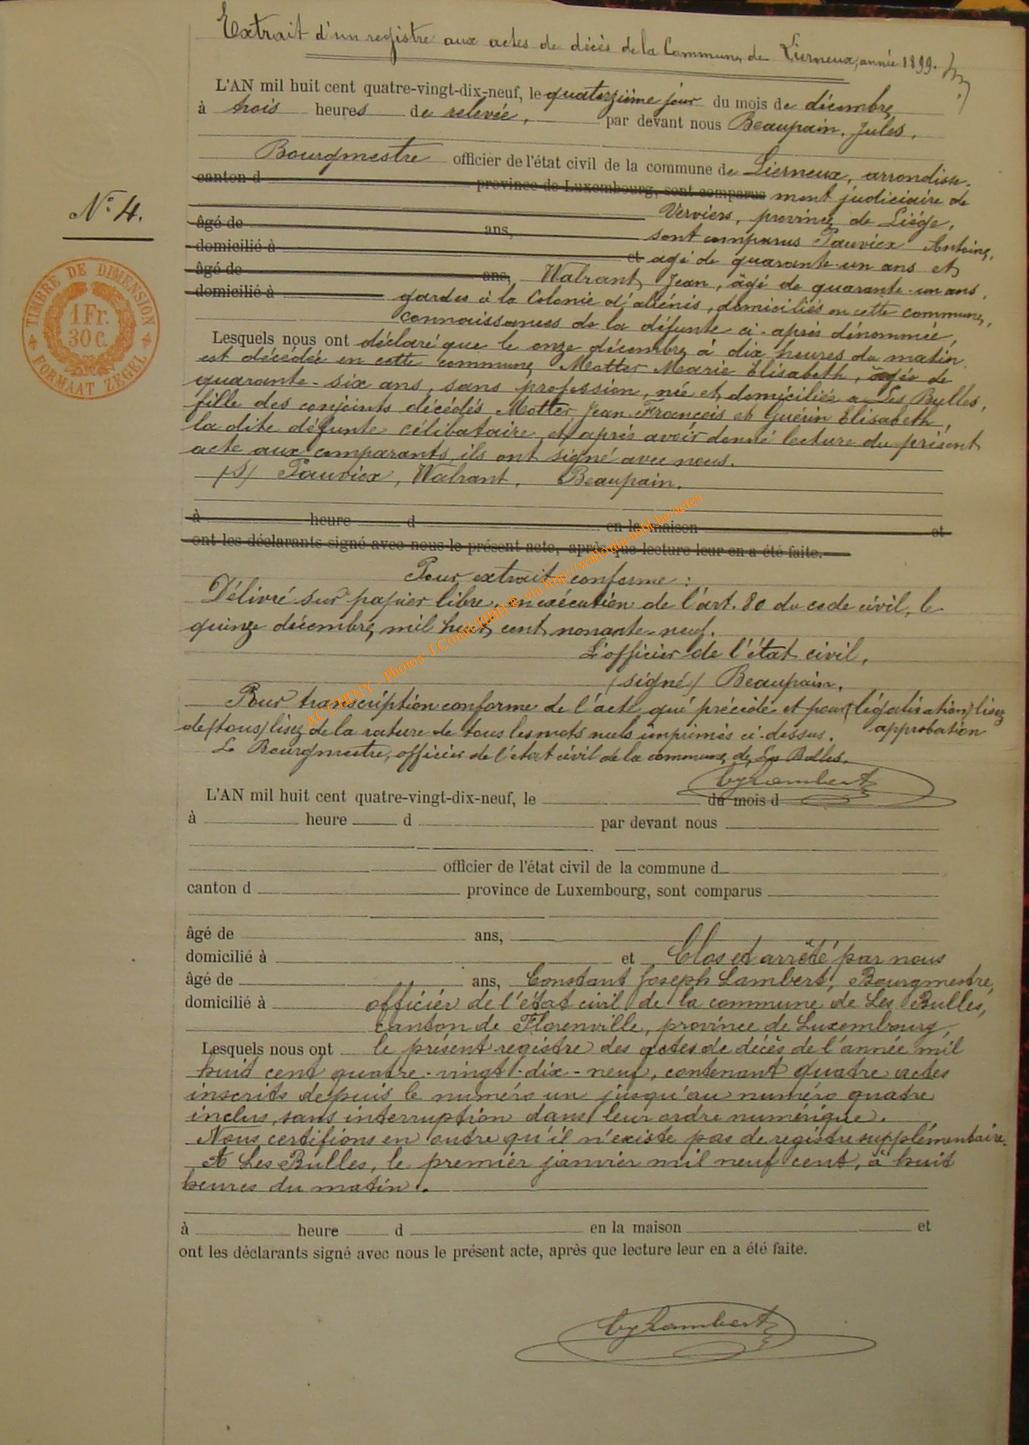 Extrait d'un registre aux actes de décès de la Commune de Lierneux, année 1899.
L'AN mil huit cent quatre-vingt-dix-neuf, le quatorzième jour du mois de décembre
à trois heures de relevée, par devant nous Beaupain, Jules,
Bourgmestre officier de l'état civil de la commune de Lierneux, arrondisse-
canton d province de Luxembourg, sont comparus ment judiciaire de
N° 4.
Verviers, province de Liége,
âgé de ans, sont comparus Antoine,
domicilié à et agé de quarante-un ans et
âgé de ans, Walrant Jean, âgé de quarante-un ans,
domicilié à gardes à la Colonie d'aliénés, domiciliés en cette commune,
connaissances de la défunte ci-après dénommée,
TIMBRE DE DIMENSION
1 Fr.
30 C.
FORMAAT ZEGEL
Lesquels nous ont déclaré que le onze décembre à dix heures du matin
est décédée en cette commune Motter Marie Elisabeth, âgée de
quarante-six ans, sans profession, née et domiciliée à Les Bulles,
fille des conjoints décédés Motter Jean François et Guérin Elisabeth,
la dite défunte célibataire, et après avoir donné lecture du présent
acte aux comparants, ils ont signé avec nous.
(S) Walrant, Beaupain.
à heure d en la maison et
ont les déclarants signé avec nous le présent acte, après que lecture leur en a été faite.
Pour extrait conforme :
Délivré sur papier libre, en exécution de l'art. 80 du code civil, le
quinze décembre mil huit cent nonante-neuf.
L'officier de l'état civil,
(signé) Beaupain.
Pour transcription conforme de l'acte qui précède et pour (légalisation) lisez
de (tous) lisez de la rature de tous les mots nuls imprimés ci-dessus. approbation
Le Bourgmestre, officier de l'état civil de la commune de Les Bulles.
Lambert
L'AN mil huit cent quatre-vingt-dix-neuf, le du mois d
à heure d par devant nous
officier de l'état civil de la commune d
canton d province de Luxembourg, sont comparus
âgé de ans,
domicilié à et Clos et arrêté par nous
âgé de ans, Constant Joseph Lambert, Bourgmestre,
domicilié à officier de l'état civil de la commune de Les Bulles,
canton de Florenville, province de Luxembourg,
Lesquels nous ont le présent registre des actes de décès de l'année mil
huit cent quatre-vingt-dix-neuf, contenant quatre actes
inscrits depuis le numéro un jusqu'au numéro quatre
inclus, sans interruption dans leur ordre numérique.
Nous certifions en outre qu'il n'existe pas de registre supplémentaire.
A Les Bulles, le premier janvier mil neuf cent, à huit
heures du matin.
à heure d en la maison et
ont les déclarants signé avec nous le présent acte, après que lecture leur en a été faite.
Lambert